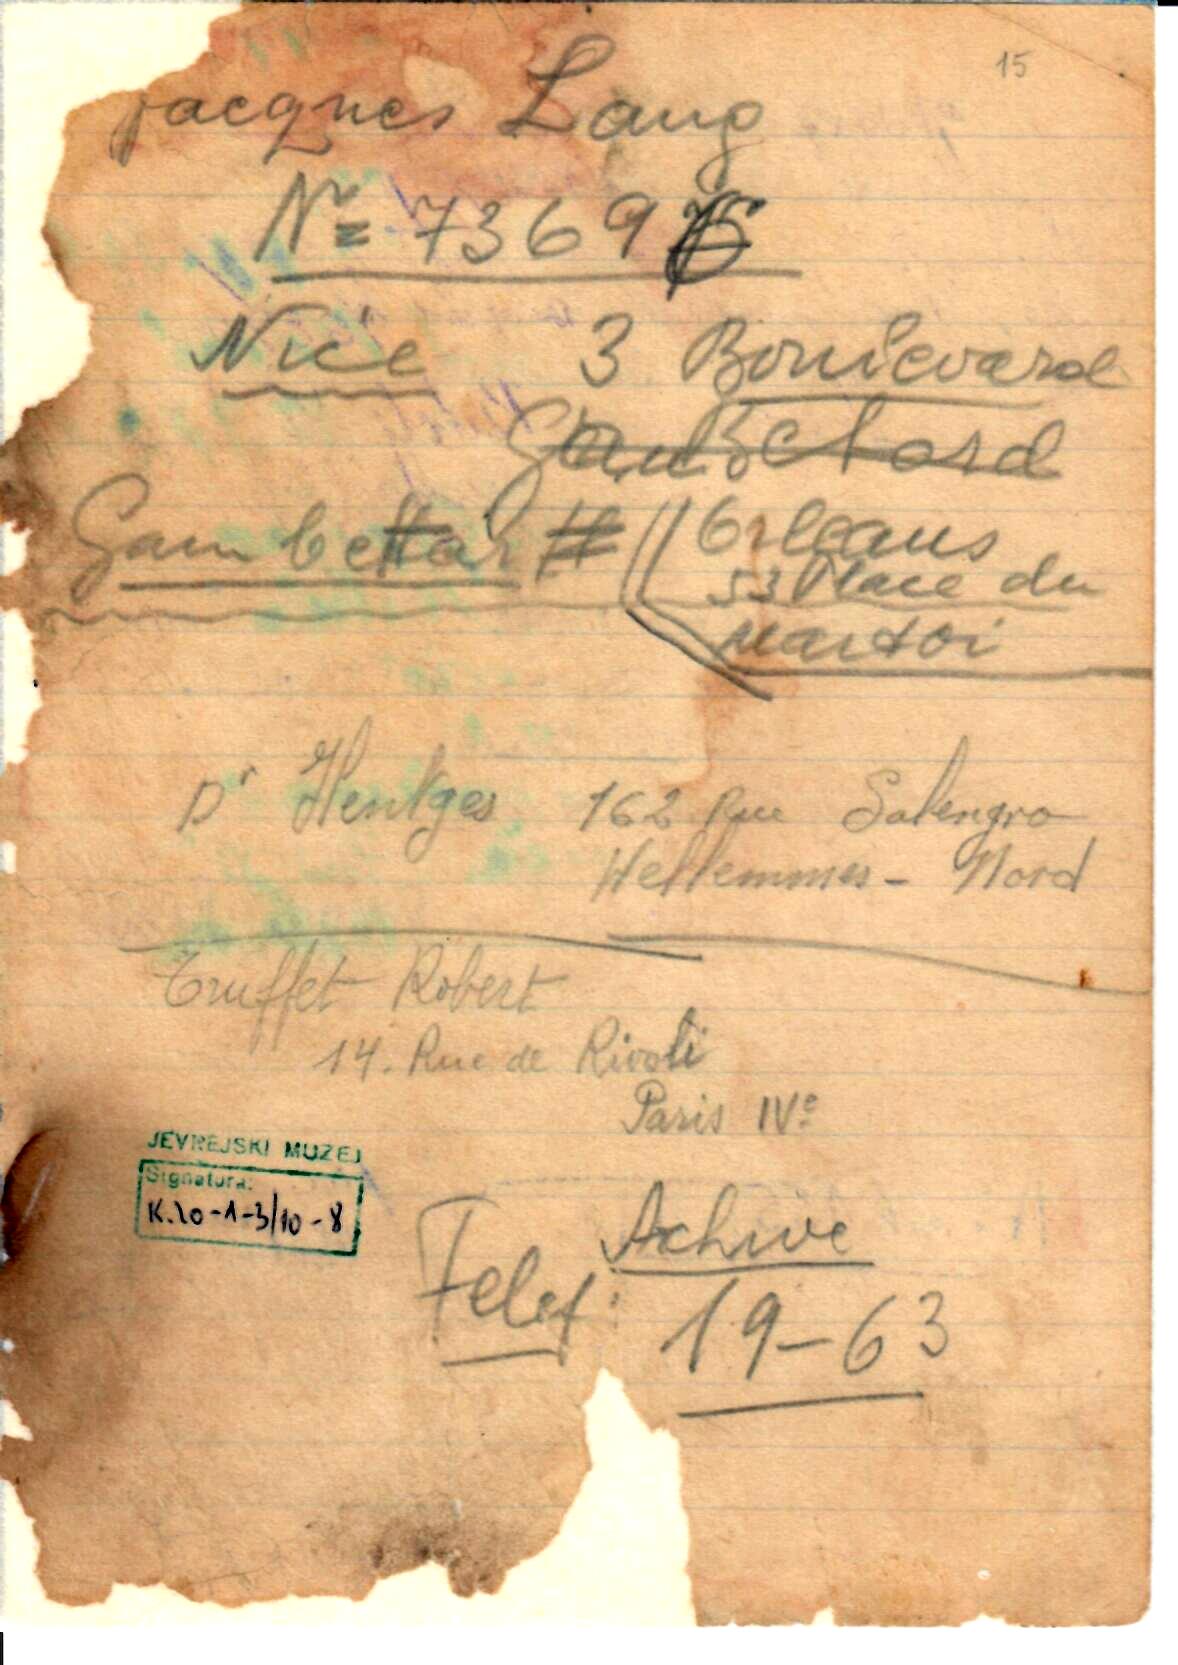 15
Jacques Lang
Nr = 7369
Nice 3 Boulevard
Gambettar
Orleans
53 Place du
Martroi
Dr Hentges 162 Rue Salengro
Hellemmes - Nord
Truffet Robert
14. Rue de Rivoli
Paris IVe
JEVREJSKI MUZEJ
Signatura:
K.20-1-3/10-8
Achive
Telef: 19-63